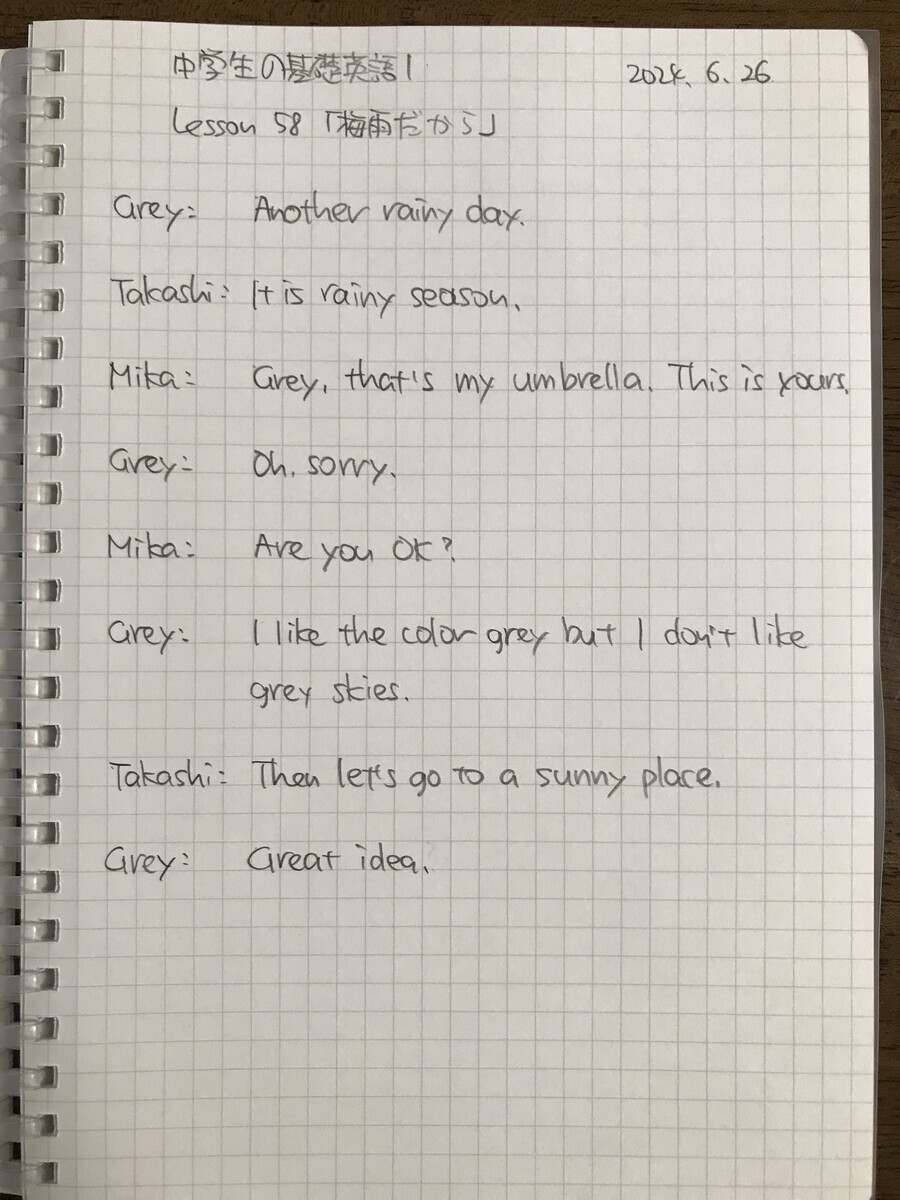 中学生の基礎英語1 2024. 6. 26
Lesson 58 「梅雨だから」
Grey: Another rainy day.
Takashi: It is rainy season.
Mika: Grey, that's my umbrella. This is yours.
Grey: Oh, sorry.
Mika: Are you OK?
Grey: I like the color grey but I don't like
grey skies.
Takashi: Then let's go to a sunny place.
Grey: Great idea.